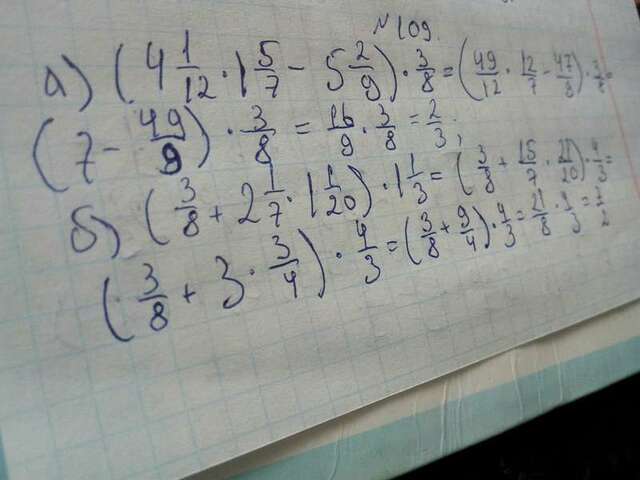 №109.
а) (4 1/12 · 1 5/7 - 5 2/9) · 3/8 = (49/12 · 12/7 - 47/9) · 3/8 =
(7 - 49/9) · 3/8 = 16/9 · 3/8 = 2/3;
б) (3/8 + 2 1/7 · 1 1/20) · 1 1/3 = (3/8 + 15/7 · 21/20) · 4/3 =
(3/8 + 3 · 3/4) · 4/3 = (3/8 + 9/4) · 4/3 = 21/8 · 4/3 = 7/2